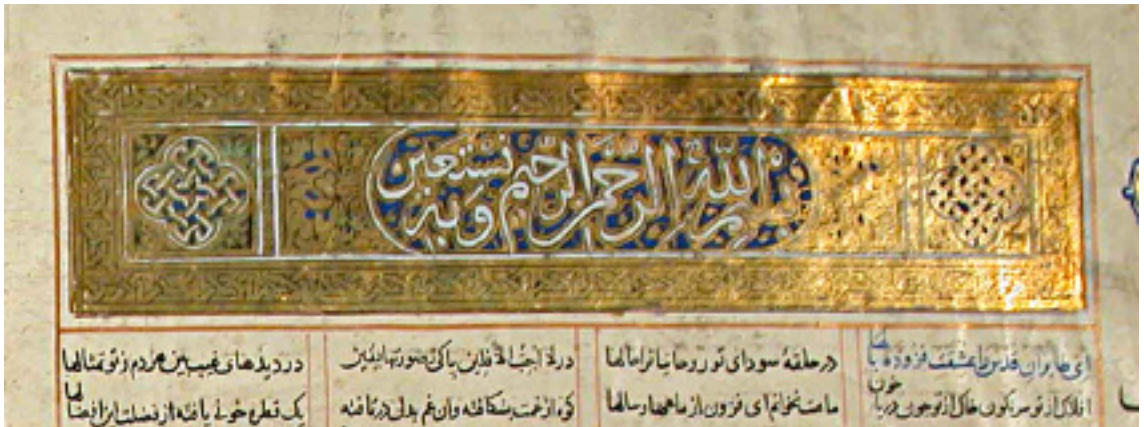 بسم الله الرحمن الرحيم وبه نستعين
ای طایران قدس را عشقت فزوده بالها در حلقهٔ سودای تو روحانیانرا حالها در لا احب الافلین پاکی ز صورتها یقین در دیدهای غیب بین هر دم ز تو تمثالها
افلاک از تو سرنگون خاک از تو چون دریا خون ماهت نخوانم ای فزون از ماهها و سالها کوه از غمت بشکافته وان غم بدل درتافته یک قطره خونی یافته از فضلت این افضالها